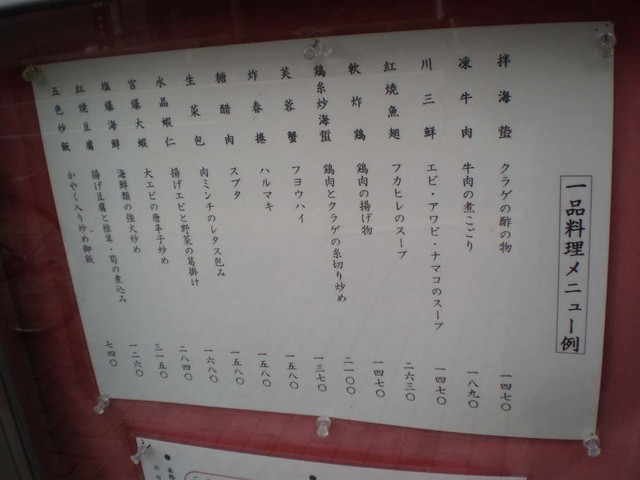 一品料理メニュー例
拌海蜇 クラゲの酢の物 一四七〇
凍牛肉 牛肉の煮こごり 一八九〇
川三鮮 エビ・アワビ・ナマコのスープ 一四七〇
紅焼魚翅 フカヒレのスープ 二六三〇
軟炸鶏 鶏肉の揚げ物 一四七〇
鶏糸炒海蜇 鶏肉とクラゲの糸切り炒め 二一〇〇
芙蓉蟹 フヨウハイ 一三七〇
炸春捲 ハルマキ 一五八〇
糖醋肉 スブタ 一五八〇
生菜包 肉ミンチのレタス包み 一五八〇
水晶蝦仁 揚げエビと野菜の葛掛け 一六八〇
宮爆大蝦 大エビの唐辛子炒め 二八四〇
塩爆海鮮 海鮮類の強火炒め 三一五〇
紅焼豆腐 揚げ豆腐と椎茸・筍の煮込み 一二六〇
五色炒飯 かやく入り炒め御飯 七四〇